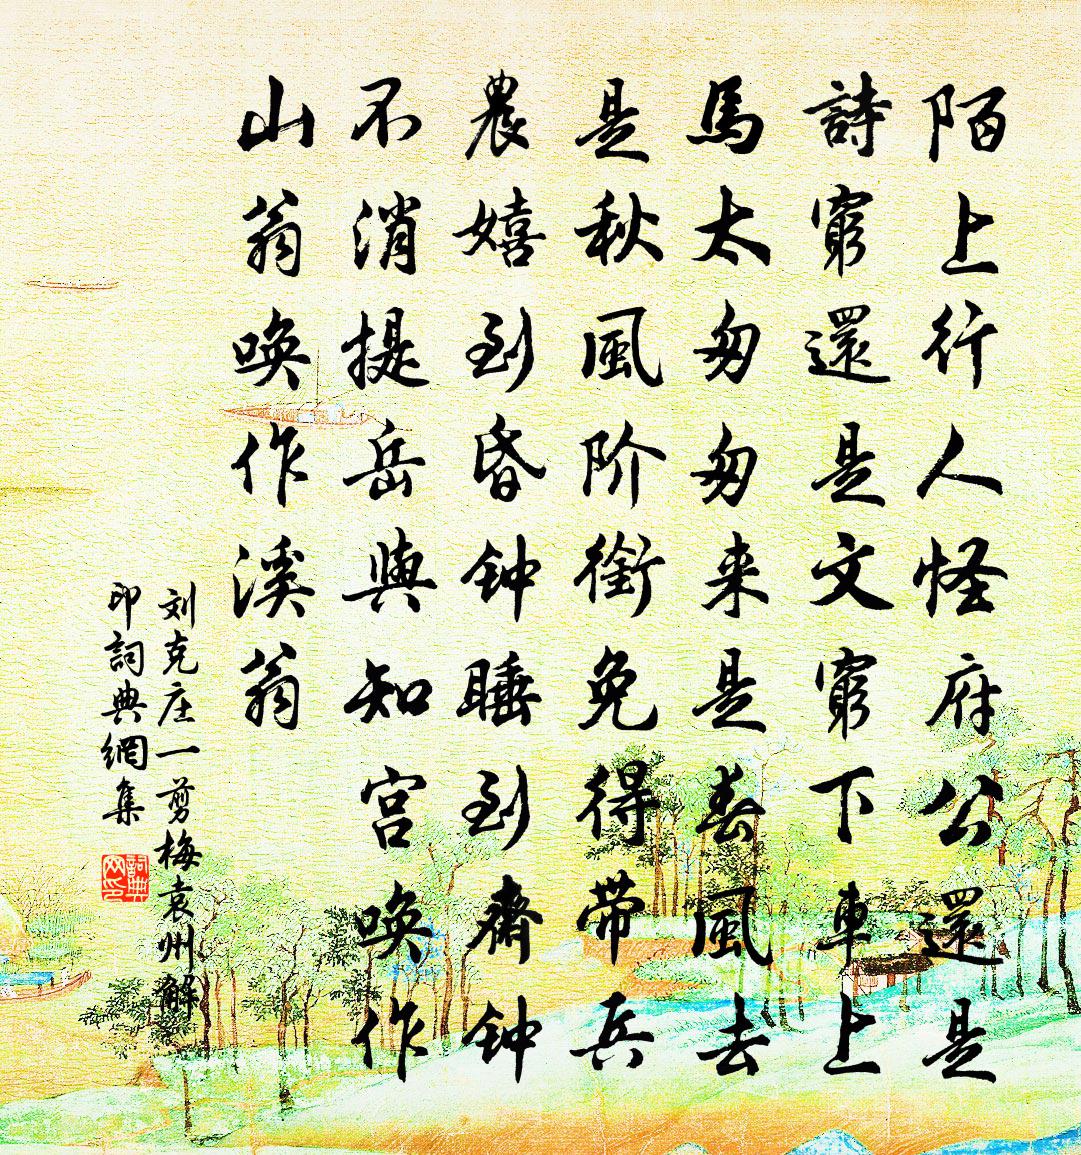 陌上行人怪府公還是
詩窮還是文窮下車上
馬太匆匆来是春風去
是秋風阶銜免得带兵
農嬉到昏钟睡到齋钟
不消提岳與知宮唤作
山翁唤作溪翁
刘克庄一剪梅袁州解
印詞典網集
詞典
网印